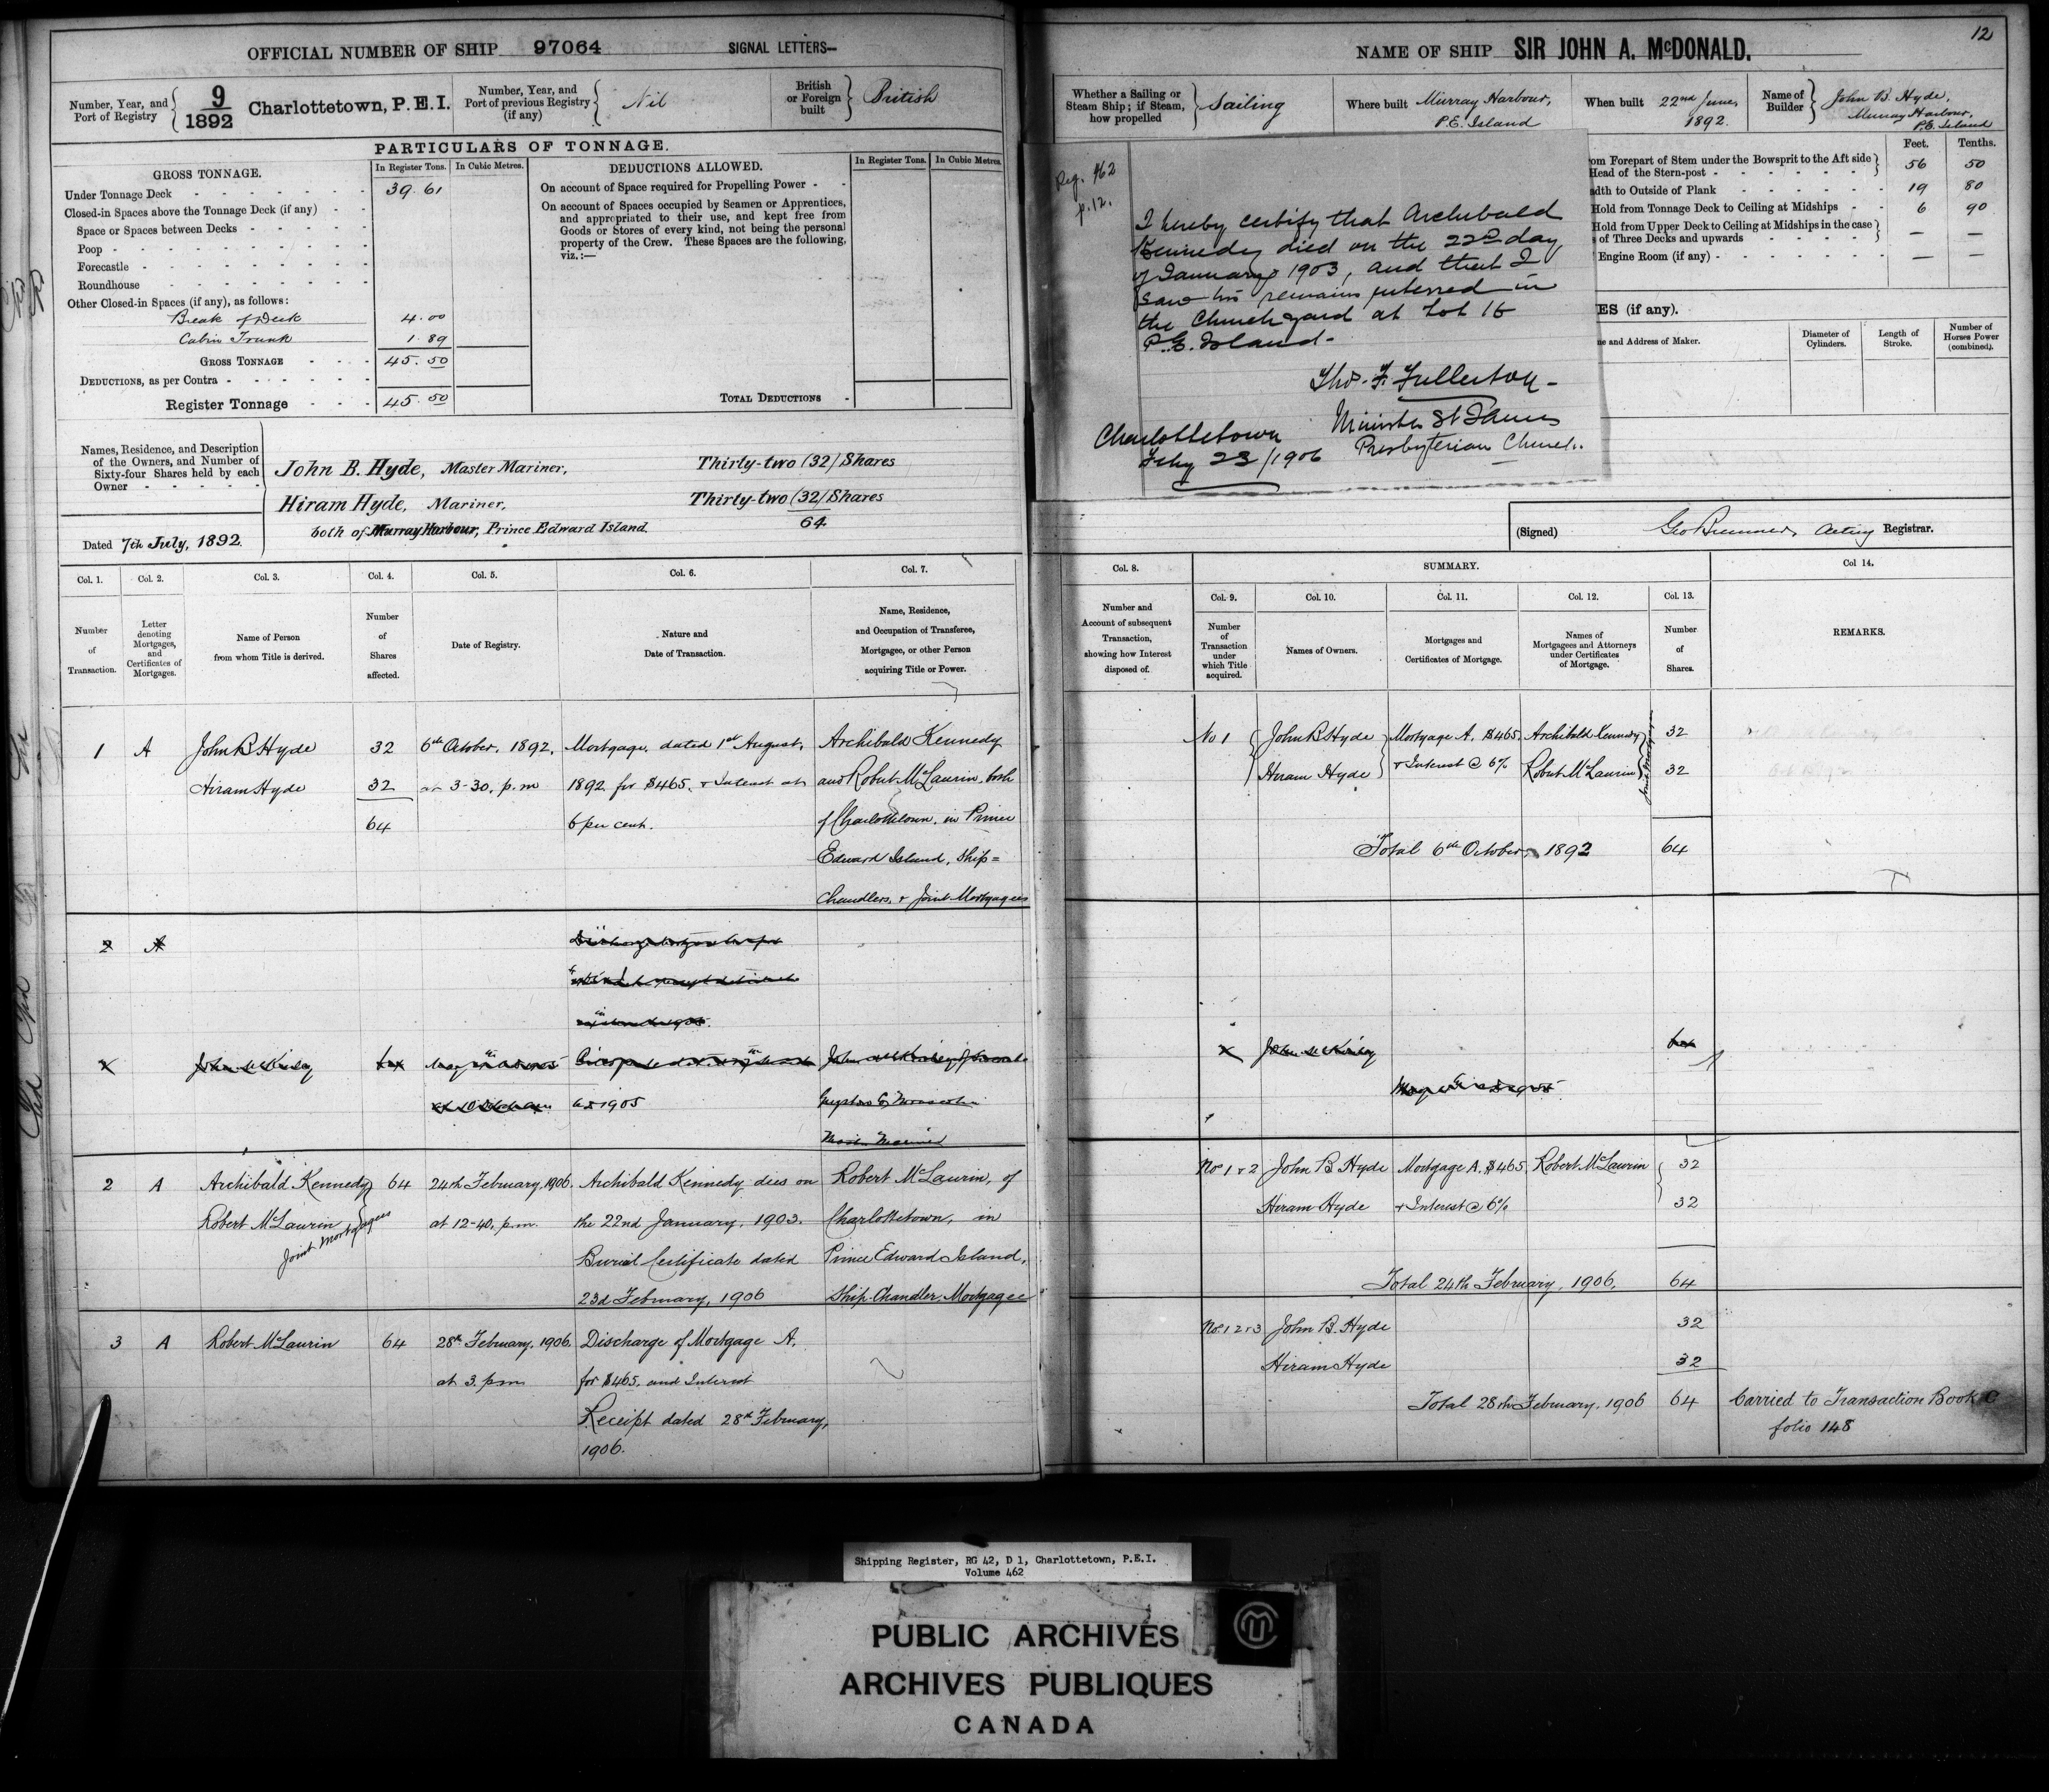 OFFICIAL NUMBER OF SHIP 97064 SIGNAL LETTERS—
Number, Year, and Port of Registry
9/1892 Charlottetown, P.E.I.
Number, Year, and Port of previous Registry (if any)
Nil
British or Foreign built
British
PARTICULARS OF TONNAGE.
GROSS TONNAGE.
In Register Tons. In Cubic Metres.
Under Tonnage Deck 39.61
Closed-in Spaces above the Tonnage Deck (if any)
Space or Spaces between Decks
Poop
Forecastle
Roundhouse
Other Closed-in Spaces (if any), as follows:
Break of Deck 4.00
Cabin Trunk 1.89
GROSS TONNAGE 45.50
DEDUCTIONS, as per Contra
Register Tonnage 45.50
DEDUCTIONS ALLOWED.
In Register Tons. In Cubic Metres.
On account of Space required for Propelling Power
On account of Spaces occupied by Seamen or Apprentices,
and appropriated to their use, and kept free from
Goods or Stores of every kind, not being the personal
property of the Crew. These Spaces are the following,
viz.:—
TOTAL DEDUCTIONS
Names, Residence, and Description
of the Owners, and Number of
Sixty-four Shares held by each
Owner
John B. Hyde, Master Mariner, Thirty-two (32) Shares
Hiram Hyde, Mariner, Thirty-two (32) Shares
both of Murray Harbour, Prince Edward Island. 64
Dated 7th July, 1892.
Col. 1. Col. 2. Col. 3. Col. 4. Col. 5. Col. 6. Col. 7.
Number of Transaction.
Letter denoting Mortgages, and Certificates of Mortgages.
Name of Person from whom Title is derived.
Number of Shares affected.
Date of Registry.
Nature and Date of Transaction.
Name, Residence, and Occupation of Transferee, Mortgagee, or other Person acquiring Title or Power.
1 A John B Hyde 32 6th October, 1892, Mortgage, dated 1st August, Archibald Kennedy
Hiram Hyde 32 at 3-30. p.m 1892 for $465. & Interest at and Robert McLaurin, both
64 6 per cent. of Charlottetown, in Prince
Edward Island, Ship=
Chandlers, & Joint Mortgagees
2 A
x John McKinlay
1905
2 A Archibald Kennedy 64 24th February, 1906. Archibald Kennedy dies on Robert McLaurin, of
Robert McLaurin at 12-40, p.m. the 22nd January, 1903. Charlottetown, in
Joint Mortgagees Burial Certificate dated Prince Edward Island,
23d February, 1906 Ship-Chandler, Mortgagee
3 A Robert McLaurin 64 28th February, 1906. Discharge of Mortgage A.
at 3. p.m for $465. and Interest
Receipt dated 28th February,
1906.
12
NAME OF SHIP SIR JOHN A. McDONALD.
Whether a Sailing or Steam Ship; if Steam, how propelled
Sailing
Where built Murray Harbour, P.E. Island
When built 22nd June, 1892.
Name of Builder John B. Hyde, Murray Harbour, P.E. Island
Feet. Tenths.
om Forepart of Stem under the Bowsprit to the Aft side
Head of the Stern-post 56 50
dth to Outside of Plank 19 80
Hold from Tonnage Deck to Ceiling at Midships 6 90
Hold from Upper Deck to Ceiling at Midships in the case
of Three Decks and upwards — —
Engine Room (if any) — —
ES (if any).
ne and Address of Maker.
Diameter of Cylinders.
Length of Stroke.
Number of Horses Power (combined).
Reg. 462
p. 12.
I hereby certify that Archibald
Kennedy died on the 22nd day
of January 1903, and that I
saw his remains interred in
the Church yard at Lot 16
P.E. Island.
Thos. F. Fullerton
Minister St James
Presbyterian Church.
Charlottetown
Feby 23/1906
(Signed) Acting Registrar.
Col. 8. SUMMARY. Col 14.
Col. 9. Col. 10. Col. 11. Col. 12. Col. 13.
Number and Account of subsequent Transaction, showing how Interest disposed of.
Number of Transaction under which Title acquired.
Names of Owners.
Mortgages and Certificates of Mortgage.
Names of Mortgagees and Attorneys under Certificates of Mortgage.
Number of Shares.
REMARKS.
No 1 John B Hyde Mortgage A. $465. Archibald Kennedy 32
Hiram Hyde & Interest @ 6% Robert McLaurin 32
Joint Mortgagees
Total 6th October, 1892 64
x John McKinlay
Nos 1 & 2 John B. Hyde Mortgage A. $465 Robert McLaurin 32
Hiram Hyde & Interest @ 6% 32
Total 24th February, 1906, 64
Nos. 1 2 & 3 John B. Hyde 32
Hiram Hyde 32
Total 28th February, 1906 64 Carried to Transaction Book C
folio 148
Shipping Register, RG 42, D 1, Charlottetown, P.E.I.
Volume 462
PUBLIC ARCHIVES
ARCHIVES PUBLIQUES
CANADA